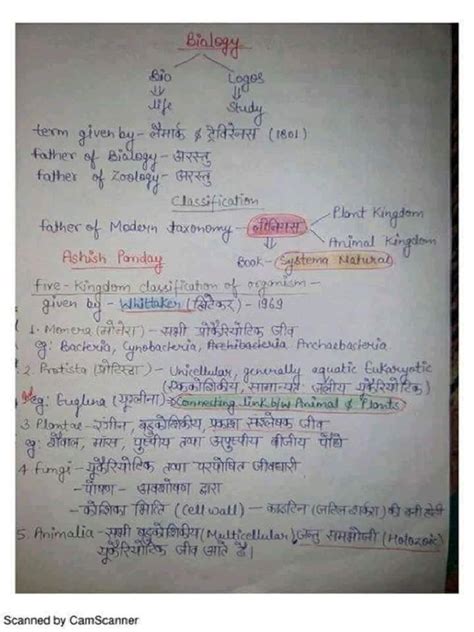 Biology
Bio Logos
Life Study
term given by - लैमार्क & ट्रेविरेनस (1801)
father of Biology - अरस्तु
father of Zoology - अरस्तु
Classification
father of Modern taxonomy - लीनियस
Plant Kingdom
Animal Kingdom
Book - Systema Natural
Ashish Panday
five - Kingdom classification of organism -
given by - Whittaker (व्हिटेकर) - 1969
1. Monera (मोनेरा) - सभी प्रोकैरियोटिक जीव
eg: Bacteria, Cynobacteria, Archibacteria Archaebacteria
2. Protista (प्रोटिस्टा) - Unicellular, generally aquatic Eukaryotic
(एककोशिकीय, सामान्यतः जलीय यूकैरियोटिक)
eg: Euglina (यूग्लीना) Connecting link b/w Animal & Plants
3 Plantae - रंगीन, बहुकोशिकीय, प्रकाश संश्लेषक जीव
eg: शैवाल, मांस, पुष्पीय तथा अपुष्पीय बीजीय पौधे
4 Fungi - यूकैरियोटिक तथा परपोषित जीवधारी
- पोषण - अवशोषण द्वारा
- कोशिका भित्ति (Cell wall) - काइटिन (जटिल शर्करा) की बनी होती
5. Animalia - सभी बहुकोशिकीय (Multicellular) जन्तु समभोजी (Holozoic)
यूकैरियोटिक जीव आते है।
Scanned by CamScanner